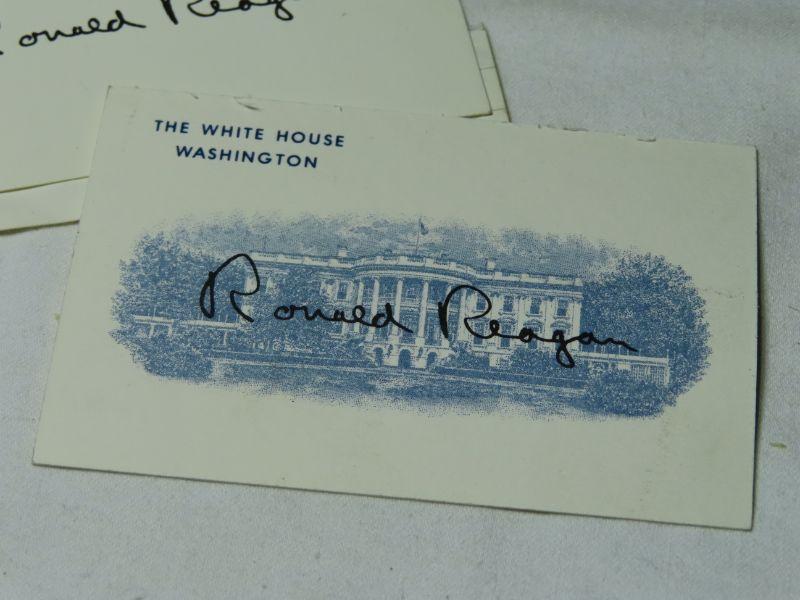 Ronald Reaga
THE WHITE HOUSE
WASHINGTON
Ronald Reagan